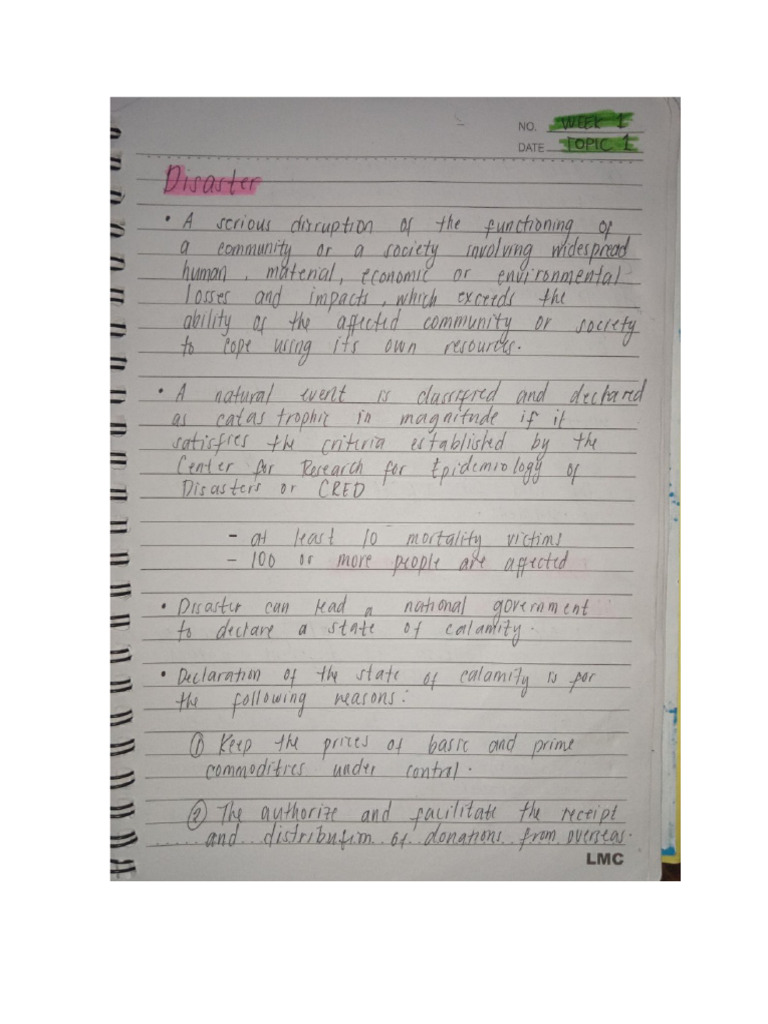 NO. WEEK 1
DATE TOPIC 1
Disaster
• A serious disruption of the functioning of
a community or a society involving widespread
human, material, economic or environmental
losses and impacts, which exceeds the
ability of the affected community or society
to cope using its own resources.
• A natural event is classified and declared
as catastrophic in magnitude if it
satisfies the criteria established by the
Center for Research for Epidemiology of
Disasters or CRED
- at least 10 mortality victims
- 100 or more people are affected
• Disaster can lead a national government
to declare a state of calamity.
• Declaration of the state of calamity is for
the following reasons:
① Keep the prices of basic and prime
commodities under control.
② The authorize and facilitate the receipt
and distribution of donations from overseas.
LMC